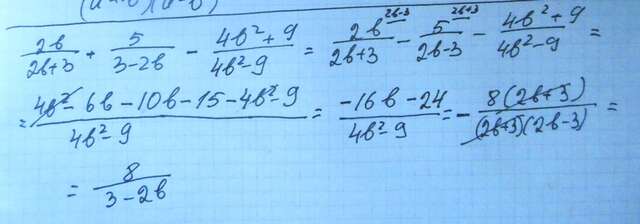 2b/(2b+3) + 5/(3-2b) - (4b²+9)/(4b²-9) = 2b^(2b-3)/(2b+3) - 5^(2b+3)/(2b-3) - (4b²+9)/(4b²-9) =
= (4b²-6b-10b-15-4b²-9)/(4b²-9) = (-16b-24)/(4b²-9) = - 8(2b+3)/((2b+3)(2b-3)) =
= 8/(3-2b)